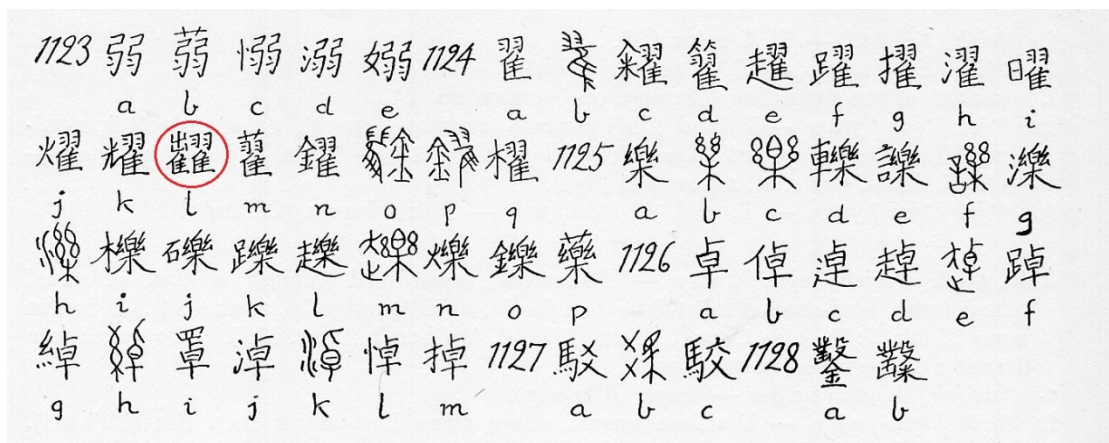 1123 弱 蒻 愵 溺 嫋 1124 翟 糴 籊 趯 躍 擢 濯 曜
a b c d e a b c d e f g h i
燿 耀 藋 鑃 櫂 1125 樂 轢 濼
j k l m n o p q a b c d e f g
櫟 礫 躒 爍 鑠 藥 1126 卓 倬 逴 趠 踔
h i j k l m n o p a b c d e f
綽 罩 淖 悼 掉 1127 駁 駮 1128 鑿 糳
g h i j k l m a b c a b